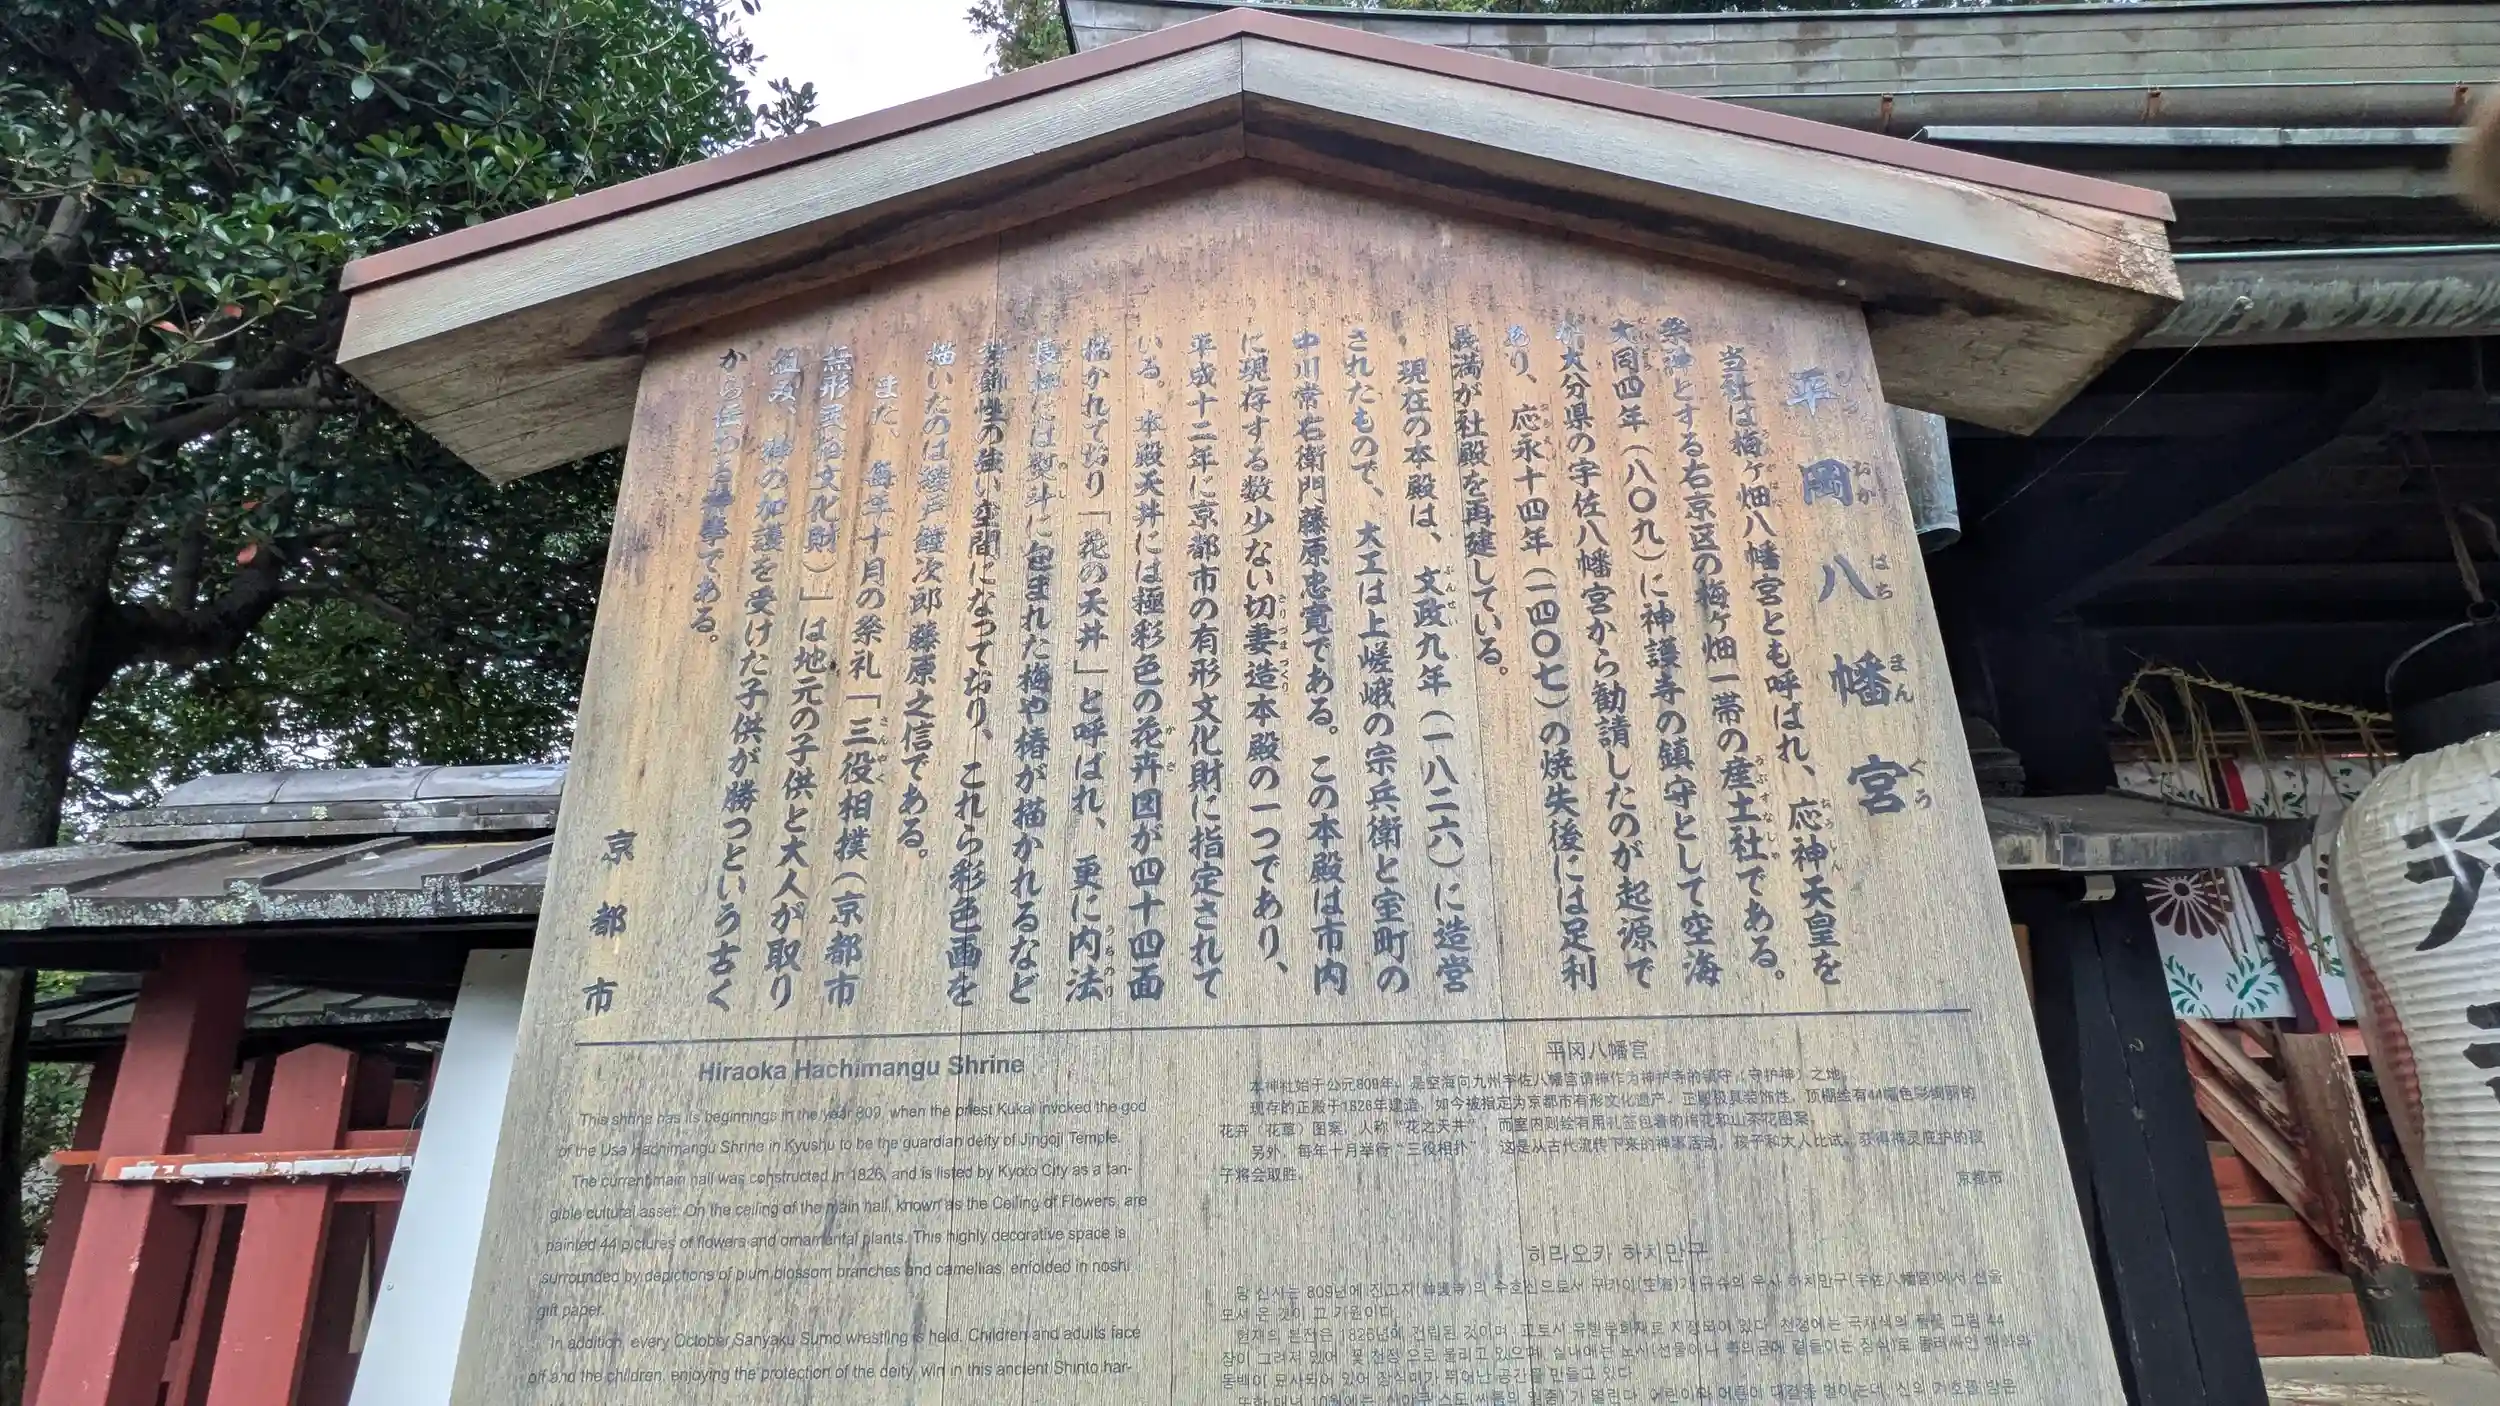 平岡八幡宮
当社は梅ヶ畑八幡宮とも呼ばれ、応神天皇を
祭神とする右京区の梅ヶ畑一帯の産土社である。
大同四年(八〇九)に神護寺の鎮守として空海
が大分県の宇佐八幡宮から勧請したのが起源で
あり、応永十四年(一四〇七)の焼失後には足利
義満が社殿を再建している。
現在の本殿は、文政九年(一八二六)に造営
されたもので、大工は上嵯峨の宗兵衛と室町の
中川常右衛門藤原忠寛である。この本殿は市内
に現存する数少ない切妻造本殿の一つであり、
平成十二年に京都市の有形文化財に指定されて
いる。本殿天井には極彩色の花卉図が四十四面
描かれており「花の天井」と呼ばれ、更に内法
長押には熨斗に包まれた梅や椿が描かれるなど
装飾性の強い空間になっており、これら彩色画を
描いたのは綾戸鐘次郎藤原之信である。
また、毎年十月の祭礼「三役相撲(京都市
無形民俗文化財)」は地元の子供と大人が取り
組み、神の加護を受けた子供が勝つという古く
から伝わる神事である。
京都市
Hiraoka Hachimangu Shrine
This shrine has its beginnings in the year 809, when the priest Kukai invoked the god
of the Usa Hachimangu Shrine in Kyushu to be the guardian deity of Jingoji Temple.
The current main hall was constructed in 1826, and is listed by Kyoto City as a tan-
gible cultural asset. On the ceiling of the main hall, known as the Ceiling of Flowers, are
painted 44 pictures of flowers and ornamental plants. This highly decorative space is
surrounded by depictions of plum blossom branches and camellias, enfolded in noshi
gift paper.
In addition, every October Sanyaku Sumo wrestling is held. Children and adults face
off and the children, enjoying the protection of the deity, win in this ancient Shinto har-
平冈八幡宫
本神社始于公元809年，是空海向九州宇佐八幡宫请神作为神护寺的镇守（守护神）之地。
现存的正殿于1826年建造，如今被指定为京都市有形文化遗产。正殿极具装饰性，顶棚绘有44幅色彩绚丽的
花卉（花草）图案，人称“花之天井”，而室内则绘有用礼签包着的梅花和山茶花图案。
另外，每年十月举行“三役相扑”，这是从古代流传下来的神事活动，孩子和大人比试，获得神灵庇护的孩
子将会取胜。
京都市
히라오카 하치만구
당 신사는 809년에 진고지(神護寺)의 수호신으로서 구카이(空海)가 규슈의 우사 하치만구(宇佐八幡宮)에서 신을
모셔 온 것이 그 기원이다.
현재의 본전은 1826년에 건립된 것이며, 교토시 유형문화재로 지정되어 있다. 천정에는 극채색의 화훼 그림 44
장이 그려져 있어 꽃 천정 으로 불리고 있으며, 실내에는 노시(선물이나 축의금에 곁들이는 장식)로 둘러싸인 매화와
동백이 묘사되어 있어 장식미가 뛰어난 공간을 만들고 있다.